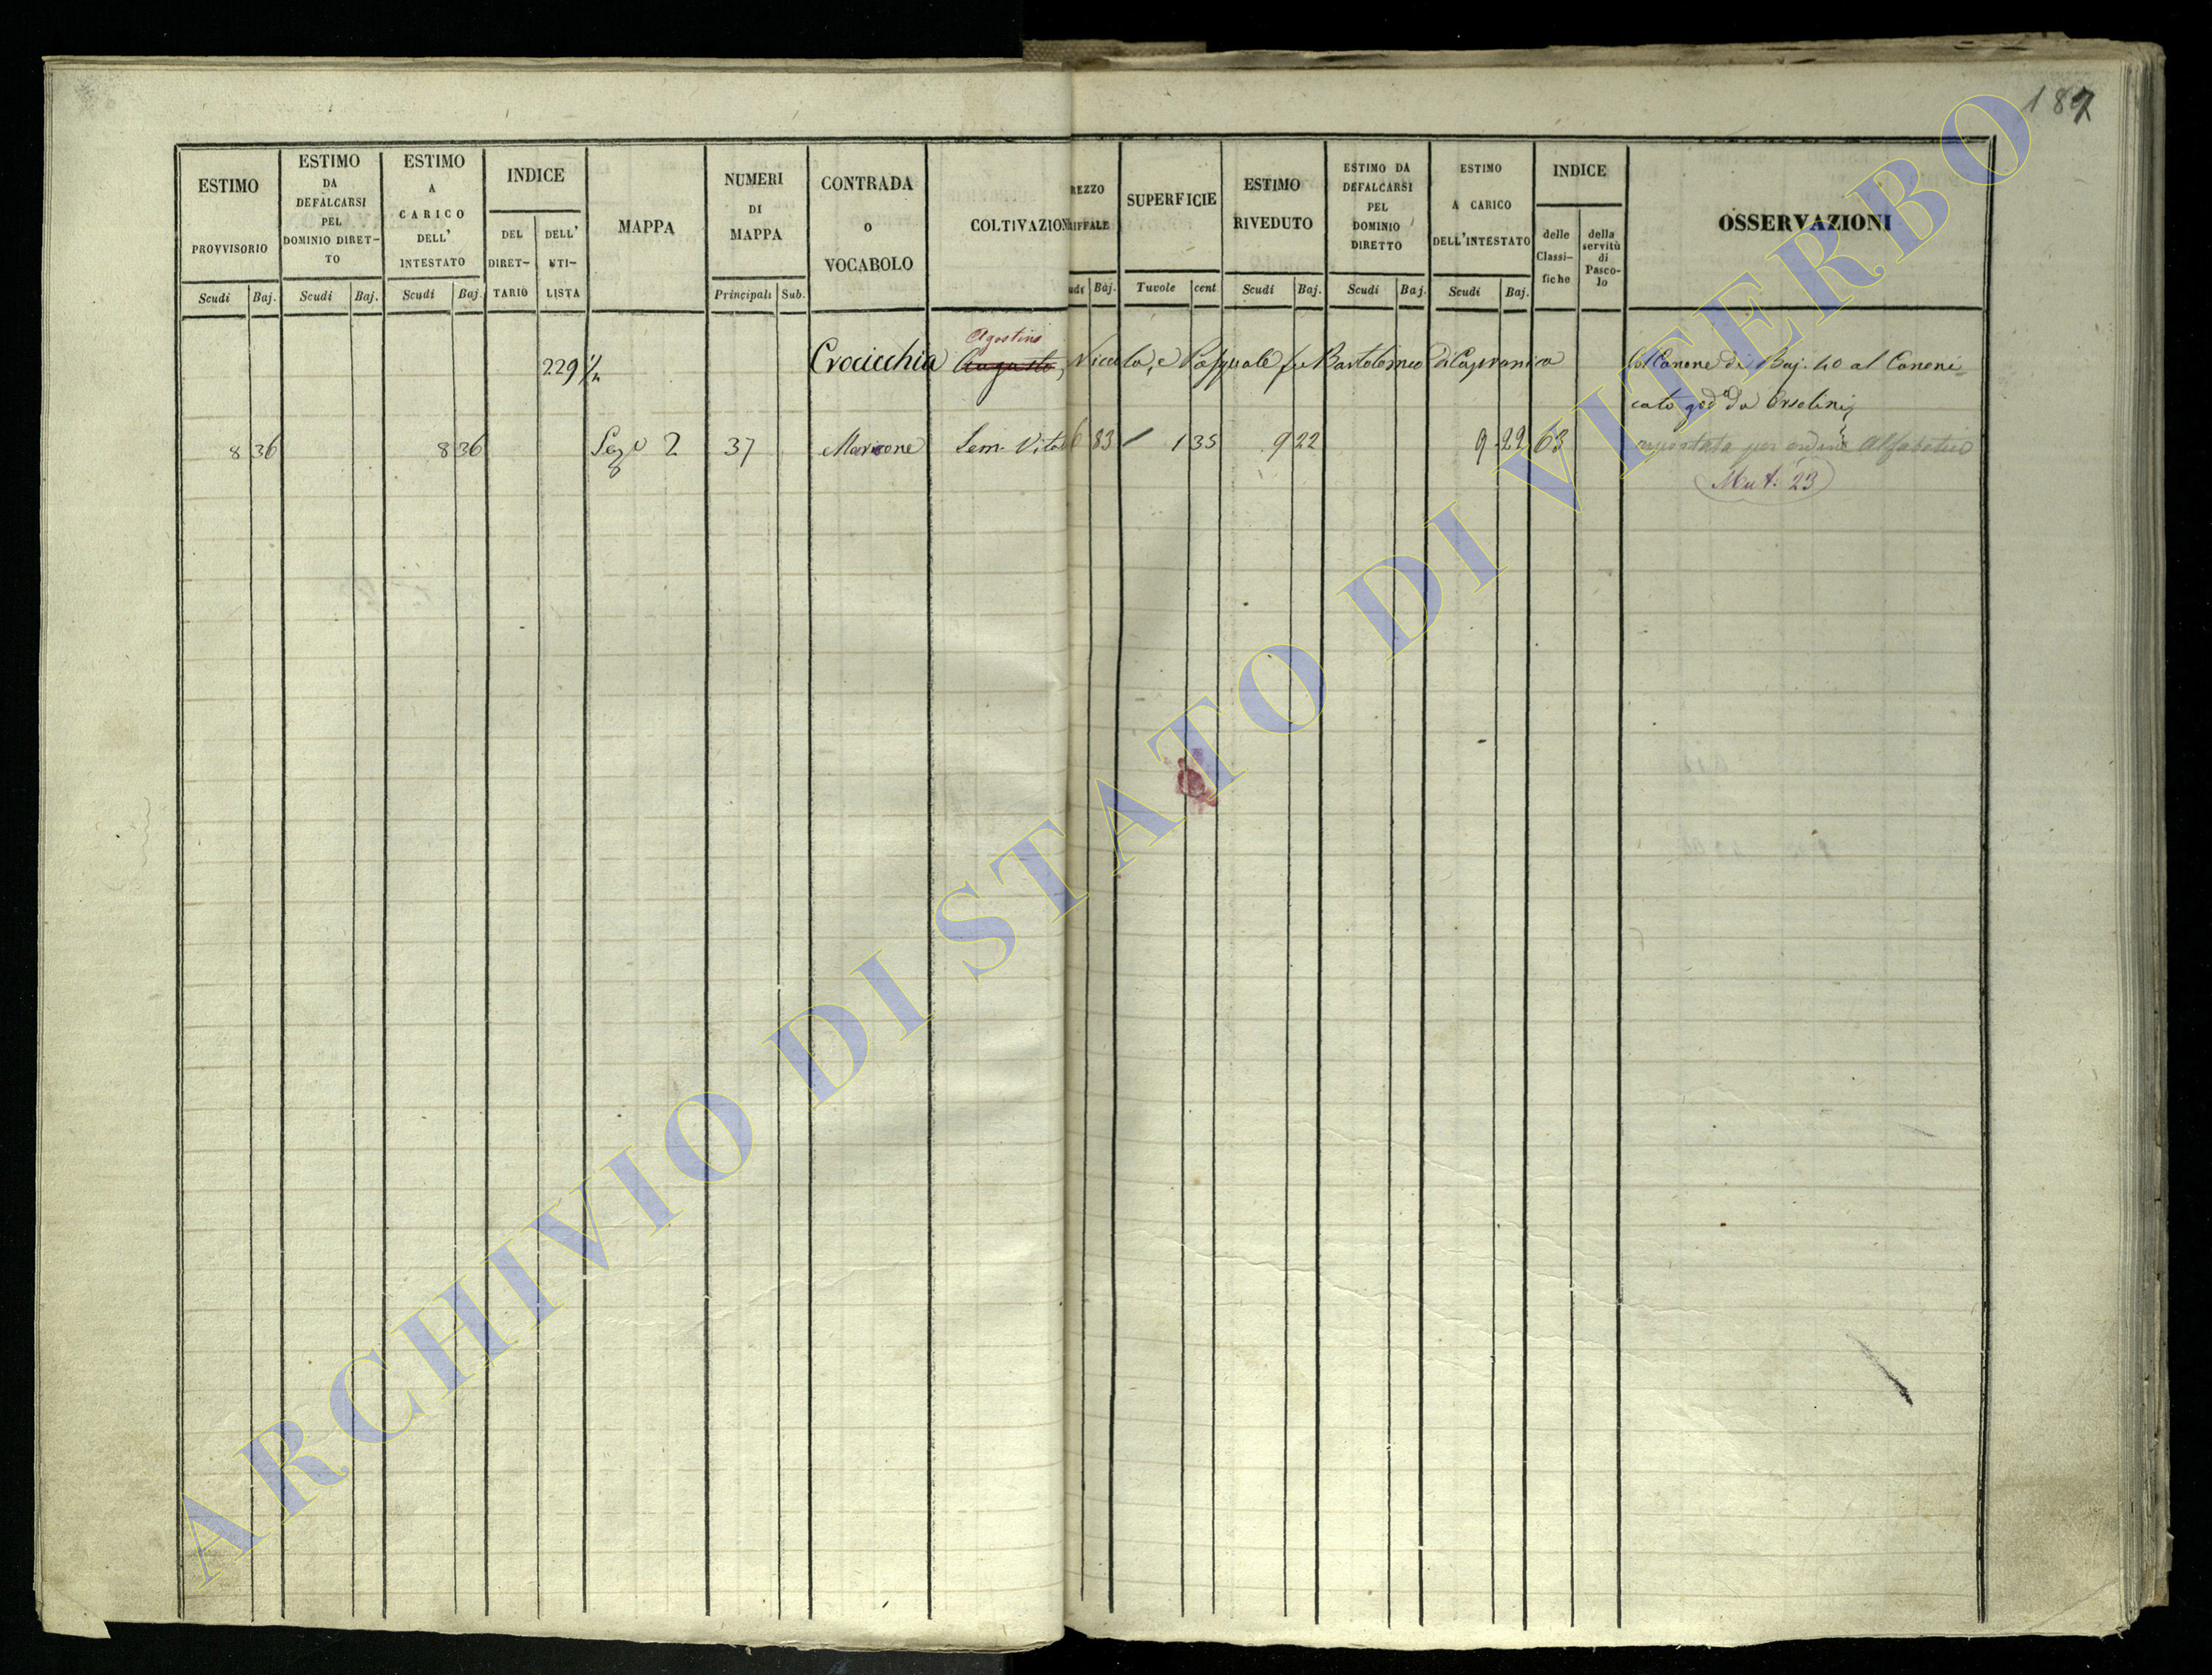 187
ESTIMO PROVVISORIO Scudi Baj.
ESTIMO DA DEFALCARSI PEL DOMINIO DIRET- TO Scudi Baj.
ESTIMO A CARICO DELL' INTESTATO Scudi Baj.
INDICE DEL DIRET- TARIO DELL' UTI- LISTA
MAPPA
NUMERI DI MAPPA Principali Sub.
CONTRADA o VOCABOLO
COLTIVAZION
REZZO RIFFALE udi Baj.
SUPERFICIE Tavole cent
ESTIMO RIVEDUTO Scudi Baj.
ESTIMO DA DEFALCARSI PEL DOMINIO DIRETTO Scudi Baj.
ESTIMO A CARICO DELL'INTESTATO Scudi Baj.
INDICE delle Classi- fiche della servitù di Pasco- lo
OSSERVAZIONI
Agostino
229 1/2 Crocicchia Augusto, Niccola, e Pasquale fu Bartolomeo di Capranica Col Canone di Baj. 40 al Canoni=
cato god^a da Orsolini
8 36 8 36 Sez^e 2 37 Maricone Sem. Vitat 6 83 1 35 9 22 9 22 63 riportata per ordine Alfabetico
Mut. 23
ARCHIVIO DI STATO DI VITERBO